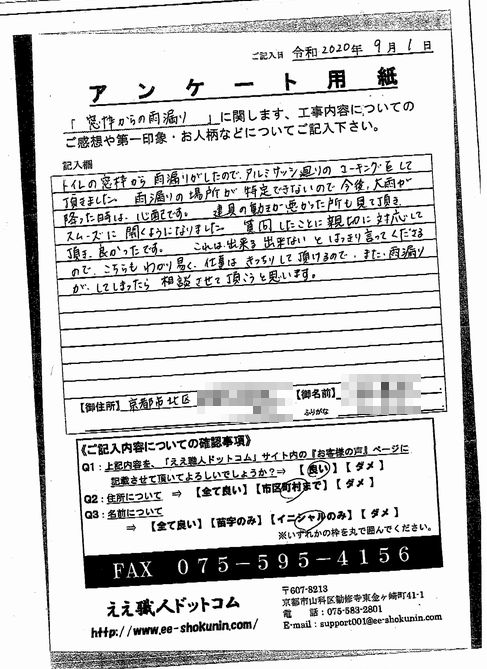 ご記入日 令和 2020年 9月 1日
アンケート用紙
「 窓枠からの雨漏り 」に関します、工事内容についての
ご感想や第一印象・お人柄などについてご記入下さい。
記入欄
トイレの窓枠から 雨漏りがしたので、アルミサッシ廻りの コーキングをして
頂きました。 雨漏りの場所が 特定できないので 今後、大雨が
降った時は、心配です。 建具の動きが悪かった所も見て頂き、
スムーズに 開くようになりました。 質問したことに親切に対応して
頂き、良かったです。 これは出来る 出来ない と はっきり言ってくださる
ので、こちらも わかり易く、仕事は きっちりして頂けるので、また、雨漏り
が、してしまったら 相談させて頂こうと思います。
【御住所】 京都市北区 【御名前】
ふりがな
《ご記入内容についての確認事項》
Q1：上記内容を、「ええ職人ドットコム」サイト内の『お客様の声』ページに
記載させて頂いてよろしいでしょうか？⇒ 【 良い 】【 ダメ 】
Q2：住所について ⇒ 【全て良い】【市区町村まで】【 ダメ 】
Q3：名前について
⇒ 【全て良い】【苗字のみ】【イニシャルのみ】【 ダメ 】
※いずれかの枠を丸で囲んでください。
FAX 075-595-4156
ええ職人ドットコム
http://www.ee-shokunin.com/
〒607-8213
京都市山科区勧修寺東金ヶ崎町41-1
電 話：075-583-2801
E-mail：support001@ee-shokunin.com